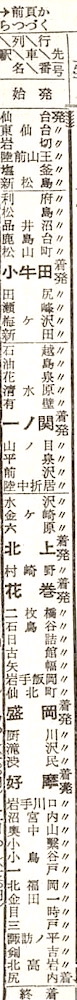 →前頁か
らつづく
列車番号
行先
駅名
始発
仙台発
東仙台〃
岩切〃
陸前山王〃
塩釜〃
新松島〃
利府〃
松島〃
品井沼〃
鹿島台〃
松山町〃
小牛田着発
田尻〃
瀬峰〃
梅ケ沢〃
新田〃
石越〃
油島〃
花泉〃
清水原〃
有壁〃
一ノ関着発
山ノ目〃
平泉〃
前沢〃
陸中折居〃
水沢〃
金ケ崎〃
六原〃
北上着発
村崎野〃
花巻着発
二枚橋〃
石鳥谷〃
日詰〃
古館〃
矢幅〃
岩手飯岡〃
仙北町〃
盛岡着発
厨川〃
滝沢〃
渋民〃
好摩着発
岩手川口〃
沼宮内〃
奥中山〃
小繋〃
小鳥谷〃
一戸〃
北福岡〃
金田一〃
目時〃
三戸〃
諏訪ノ平〃
剣吉〃
北高岩〃
尻内着
終着